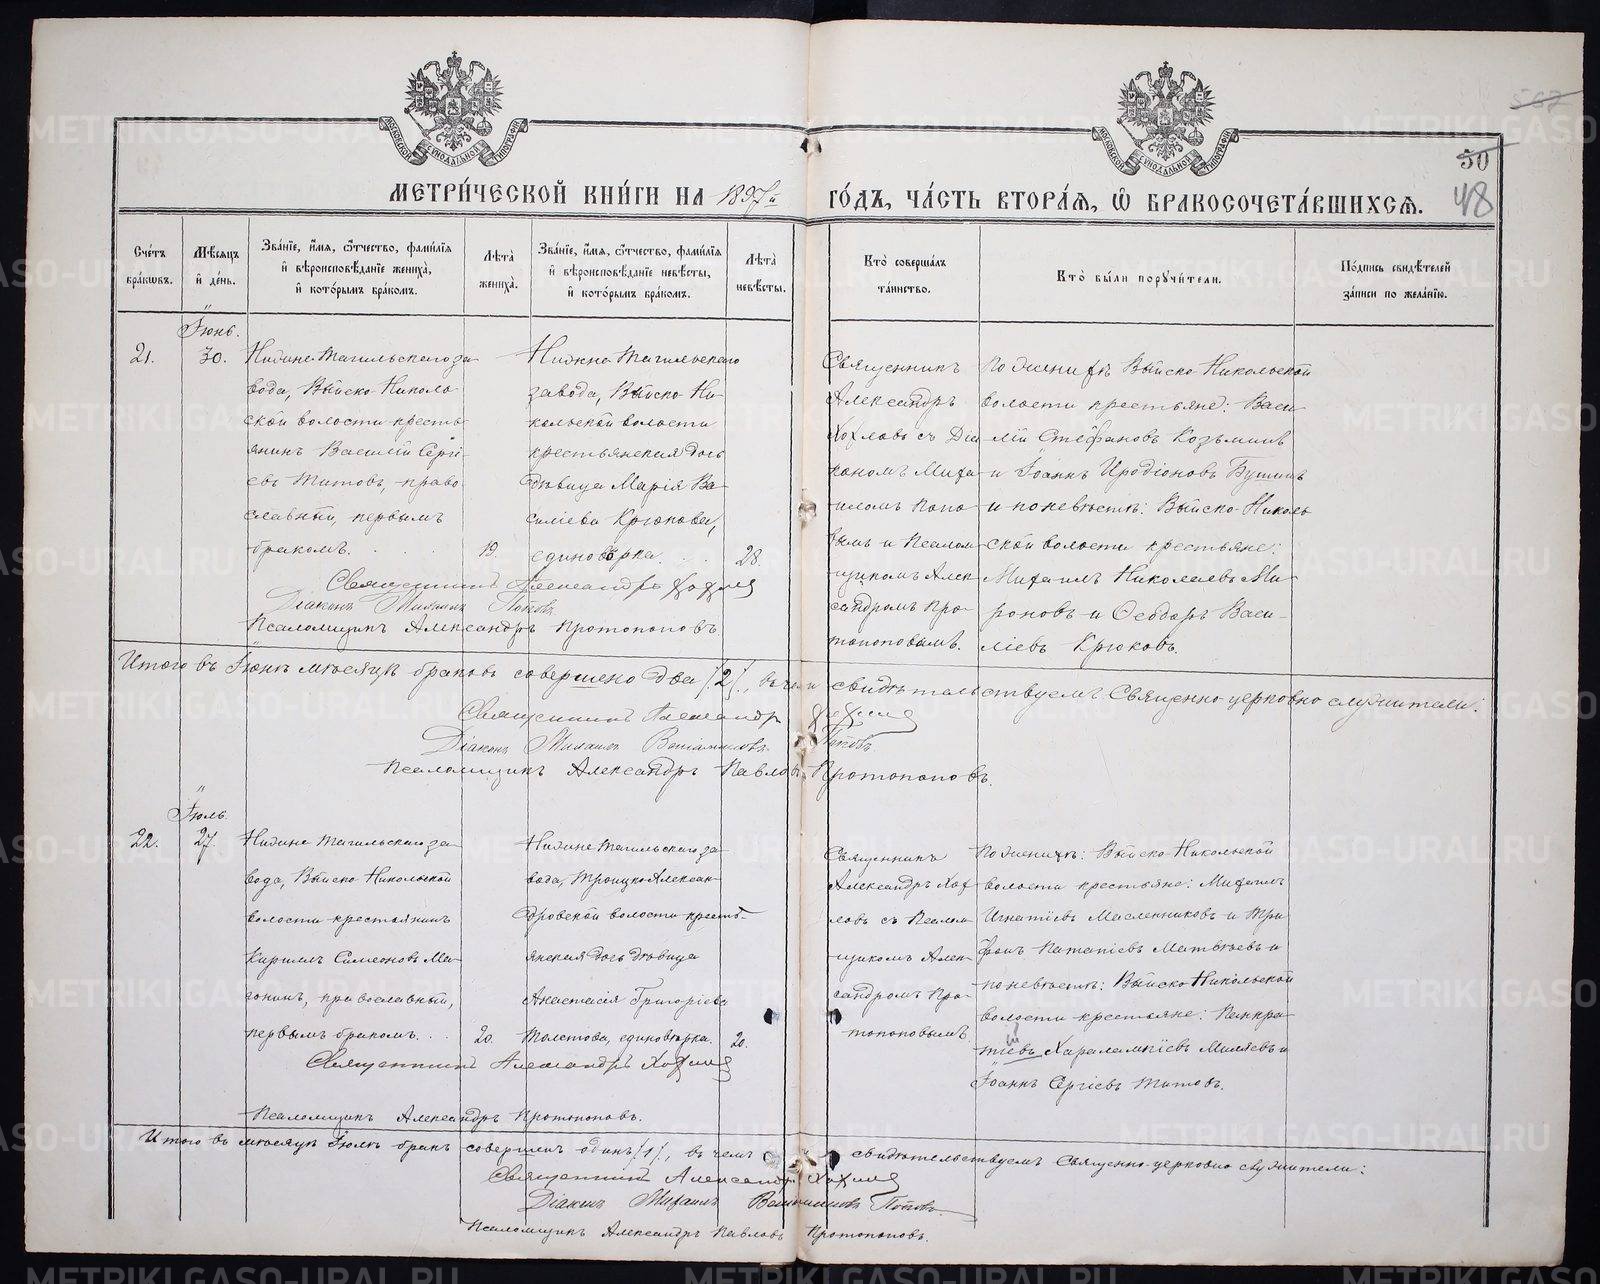 567
50
48
МОСКОВСКОЙ СУНОДАЛЬНОЙ ТИПОГРАФІИ
МОСКОВСКОЙ СУНОДАЛЬНОЙ ТИПОГРАФІИ
МЕТРИ́ЧЕСКОЙ КНИ́ГИ НА 1897й ГО́ДЪ, ЧА́СТЬ ВТОРА́Я, Ѡ БРАКОСОЧЕТА́ВШИХСѦ.
Сче́тъ бра́кѡвъ.
Мѣ́сѧцъ и҆ де́нь.
Зва́нїе, и҆́мѧ, ѻ҆́тчество, фами́лїѧ и҆ вѣроисповѣ́данїе жениха̀, и҆ кото́рымъ бра́комъ.
Лѣ́та жениха̀.
Зва́нїе, и҆́мѧ, ѻ҆́тчество, фами́лїѧ и҆ вѣроисповѣ́данїе невѣ́сты, и҆ кото́рымъ бра́комъ.
Лѣ́та невѣ́сты.
Кто̀ соверша́лъ та́инство.
Кто̀ бы́ли порꙋчи́тели.
По́дпись свидѣ́телей за́писи по жела́нїю.
Іюнь.
21.
30.
Нижне-Тагильскаго за-
вода, Выйско-Николь-
ской волости кресть-
янинъ Василій Серги-
евъ Титовъ, право-
славный, первымъ
бракомъ.
19.
Нижне-Тагильскаго
завода, Выйско-Ни-
кольской волости
крестьянская дочь
дѣвица Марія Ва-
силіева Крюкова,
единовѣрка.
28.
Священникъ
Александръ
Хохловъ съ Діа-
кономъ Миха-
иломъ Попо-
вымъ и Псалом-
щикомъ Алек-
сандромъ Про-
топоповымъ.
По женихѣ Выйско-Никольской
волости крестьяне: Васи-
лій Стефановъ Козьминъ
и Іоаннъ Иродіоновъ Бушинъ
и по невѣстѣ: Выйско-Николь-
ской волости крестьяне:
Михаилъ Николаевъ Ми-
роновъ и Ѳеодоръ Васи-
ліевъ Крюковъ.
Священникъ Александръ Хохловъ
Діаконъ Михаилъ Поповъ
Псаломщикъ Александръ Протопоповъ
Итого въ Іюнѣ мѣсяцѣ браковъ совершено два /2/, въ чемъ свидѣтельствуемъ Священно-церковно-служители:
Священникъ Александръ Хохловъ
Діаконъ Михаилъ Веніаминовъ Поповъ
Псаломщикъ Александръ Павловъ Протопоповъ.
Іюль.
22.
27.
Нижне-Тагильскаго за-
вода, Выйско-Никольской
волости крестьянинъ
Кириллъ Симеоновъ Ма-
гонинъ, православный,
первымъ бракомъ.
20.
Нижне-Тагильскаго за-
вода, Троицко-Алексан-
дровской волости кресть-
янская дочь дѣвица
Анастасія Григоріева
Толстова, единовѣрка.
20.
Священникъ
Александръ Хох-
ловъ съ Псалом-
щикомъ Алек-
сандромъ Про-
топоповымъ.
По женихѣ: Выйско-Никольской
волости крестьяне: Михаилъ
Игнатіевъ Масленниковъ и Три-
фонъ Патапіевъ Матвѣевъ и
по невѣстѣ: Выйско-Никольской
волости крестьяне: Панкра-
тій Харалампіевъ Миляевъ и
Іоаннъ Сергіевъ Титовъ.
Священникъ Александръ Хохловъ
Псаломщикъ Александръ Протопоповъ.
Итого въ мѣсяцѣ Іюлѣ бракъ совершенъ одинъ /1/, въ чемъ свидѣтельствуемъ Священно-церковно-служители:
Священникъ Александръ Хохловъ
Діаконъ Михаилъ Веніаминовъ Поповъ.
Псаломщикъ Александръ Павловъ Протопоповъ.
METRIKI.GASO-URAL.RU